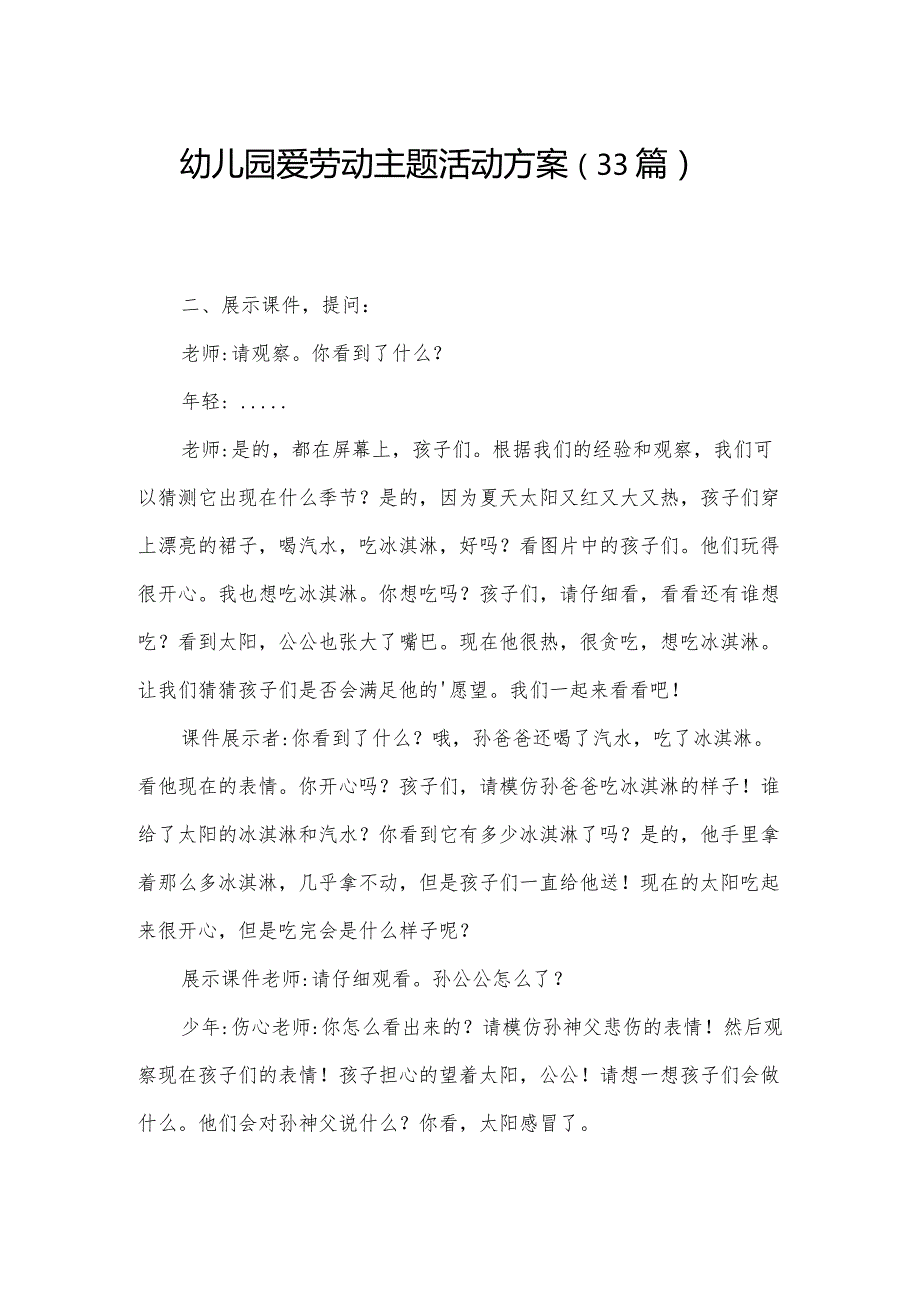 幼儿园爱劳动主题活动方案（33 篇）
二、展示课件，提问：
老师:请观察。你看到了什么？
年轻: .....
老师:是的，都在屏幕上，孩子们。根据我们的经验和观察，我们可
以猜测它出现在什么季节？是的，因为夏天太阳又红又大又热，孩子们穿
上漂亮的裙子，喝汽水，吃冰淇淋，好吗？看图片中的孩子们。他们玩得
很开心。我也想吃冰淇淋。你想吃吗？孩子们，请仔细看，看看还有谁想
吃？看到太阳，公公也张大了嘴巴。现在他很热，很贪吃，想吃冰淇淋。
让我们猜猜孩子们是否会满足他的'愿望。我们一起来看看吧！
课件展示者:你看到了什么？哦，孙爸爸还喝了汽水，吃了冰淇淋。
看他现在的表情。你开心吗？孩子们，请模仿孙爸爸吃冰淇淋的样子！谁
给了太阳的冰淇淋和汽水？你看到它有多少冰淇淋了吗？是的，他手里拿
着那么多冰淇淋，几乎拿不动，但是孩子们一直给他送！现在的太阳吃起
来很开心，但是吃完会是什么样子呢？
展示课件老师:请仔细观看。孙公公怎么了？
少年:伤心老师:你怎么看出来的？请模仿孙神父悲伤的表情！然后观
察现在孩子们的表情！孩子担心的望着太阳，公公！请想一想孩子们会做
什么。他们会对孙神父说什么？你看，太阳感冒了。